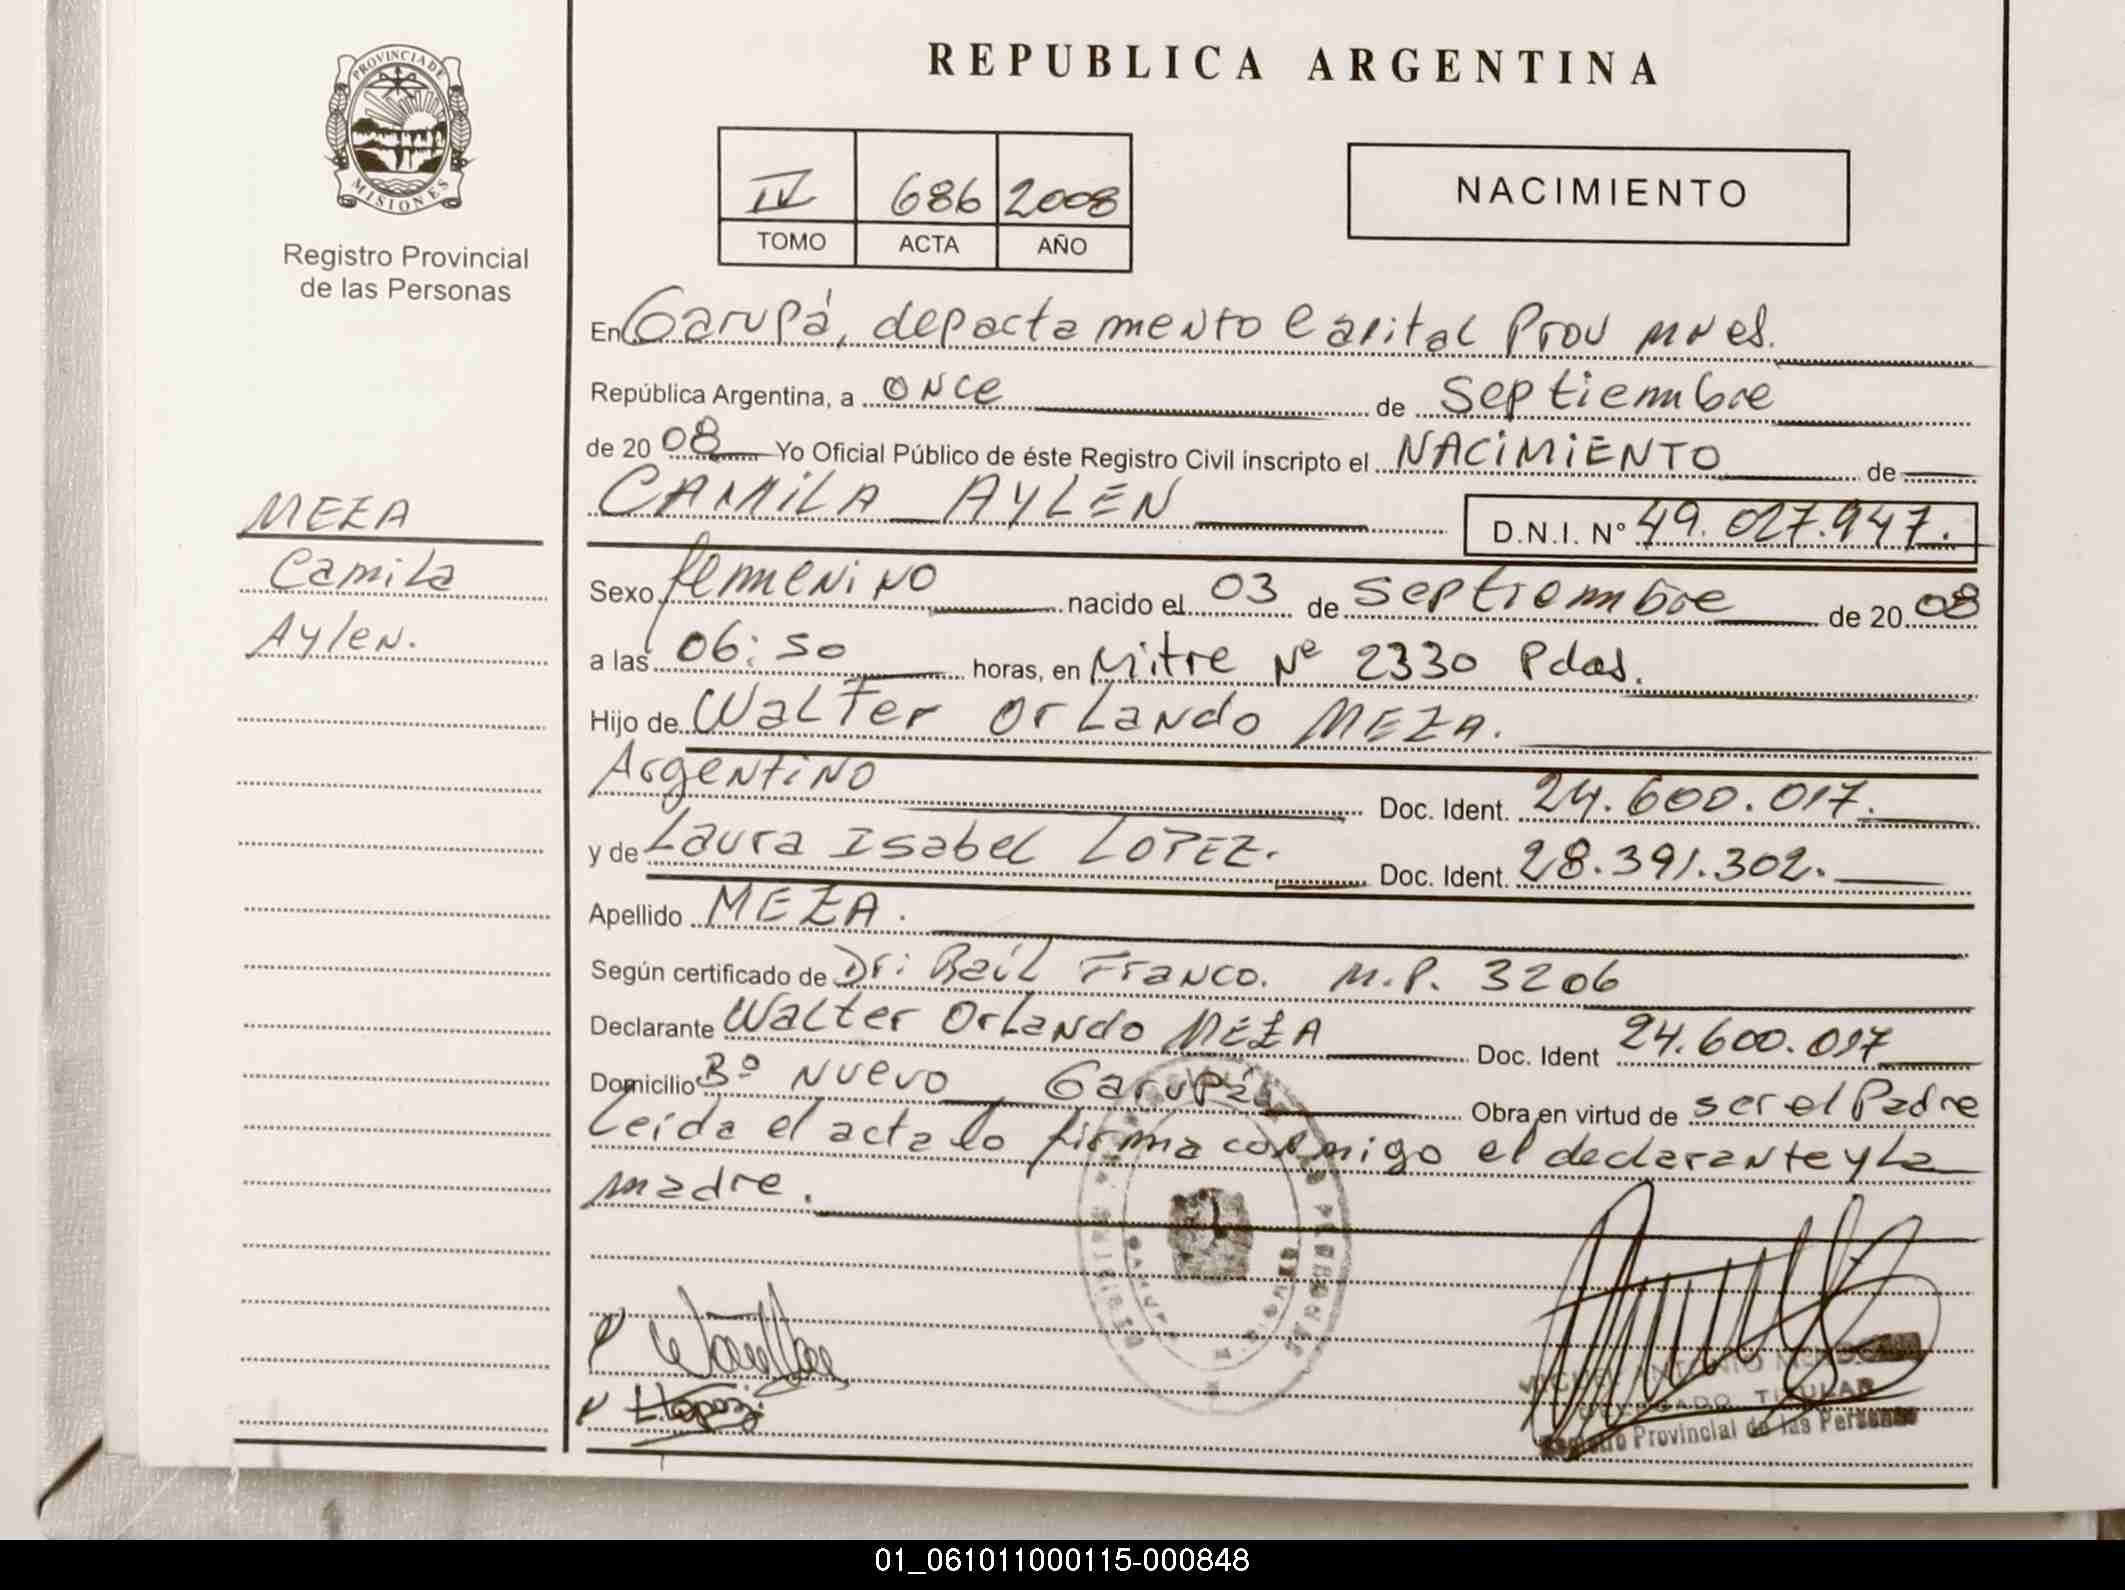 REPUBLICA ARGENTINA
PROVINCIA DE
MISIONES
Registro Provincial
de las Personas
IV 686 2008
TOMO ACTA AÑO
NACIMIENTO
En Garupá, departamento Capital Prov Mnes.
República Argentina, a once de septiembre
de 2008 Yo Oficial Público de éste Registro Civil inscripto el NACIMIENTO de
CAMILA AYLEN D.N.I. Nº 49.027.947.
MEZA
Camila
Aylen.
Sexo femenino nacido el 03 de septiembre de 2008
a las 06:50 horas, en Mitre Nº 2330 Pdas.
Hijo de Walter Orlando MEZA.
Argentino Doc. Ident. 24.600.017.
y de Laura Isabel LOPEZ. Doc. Ident. 28.391.302.
Apellido MEZA.
Según certificado de Dr: Raúl Franco. M.P. 3206
Declarante Walter Orlando MEZA Doc. Ident 24.600.017
Domicilio Bº Nuevo Garupá Obra en virtud de ser el Padre
Leída el acta lo firma conmigo el declarante y la
madre.
L. Lopez
MIGUEL ANTONIO
DELEGADO TITULAR
Registro Provincial de las Personas
01_061011000115-000848